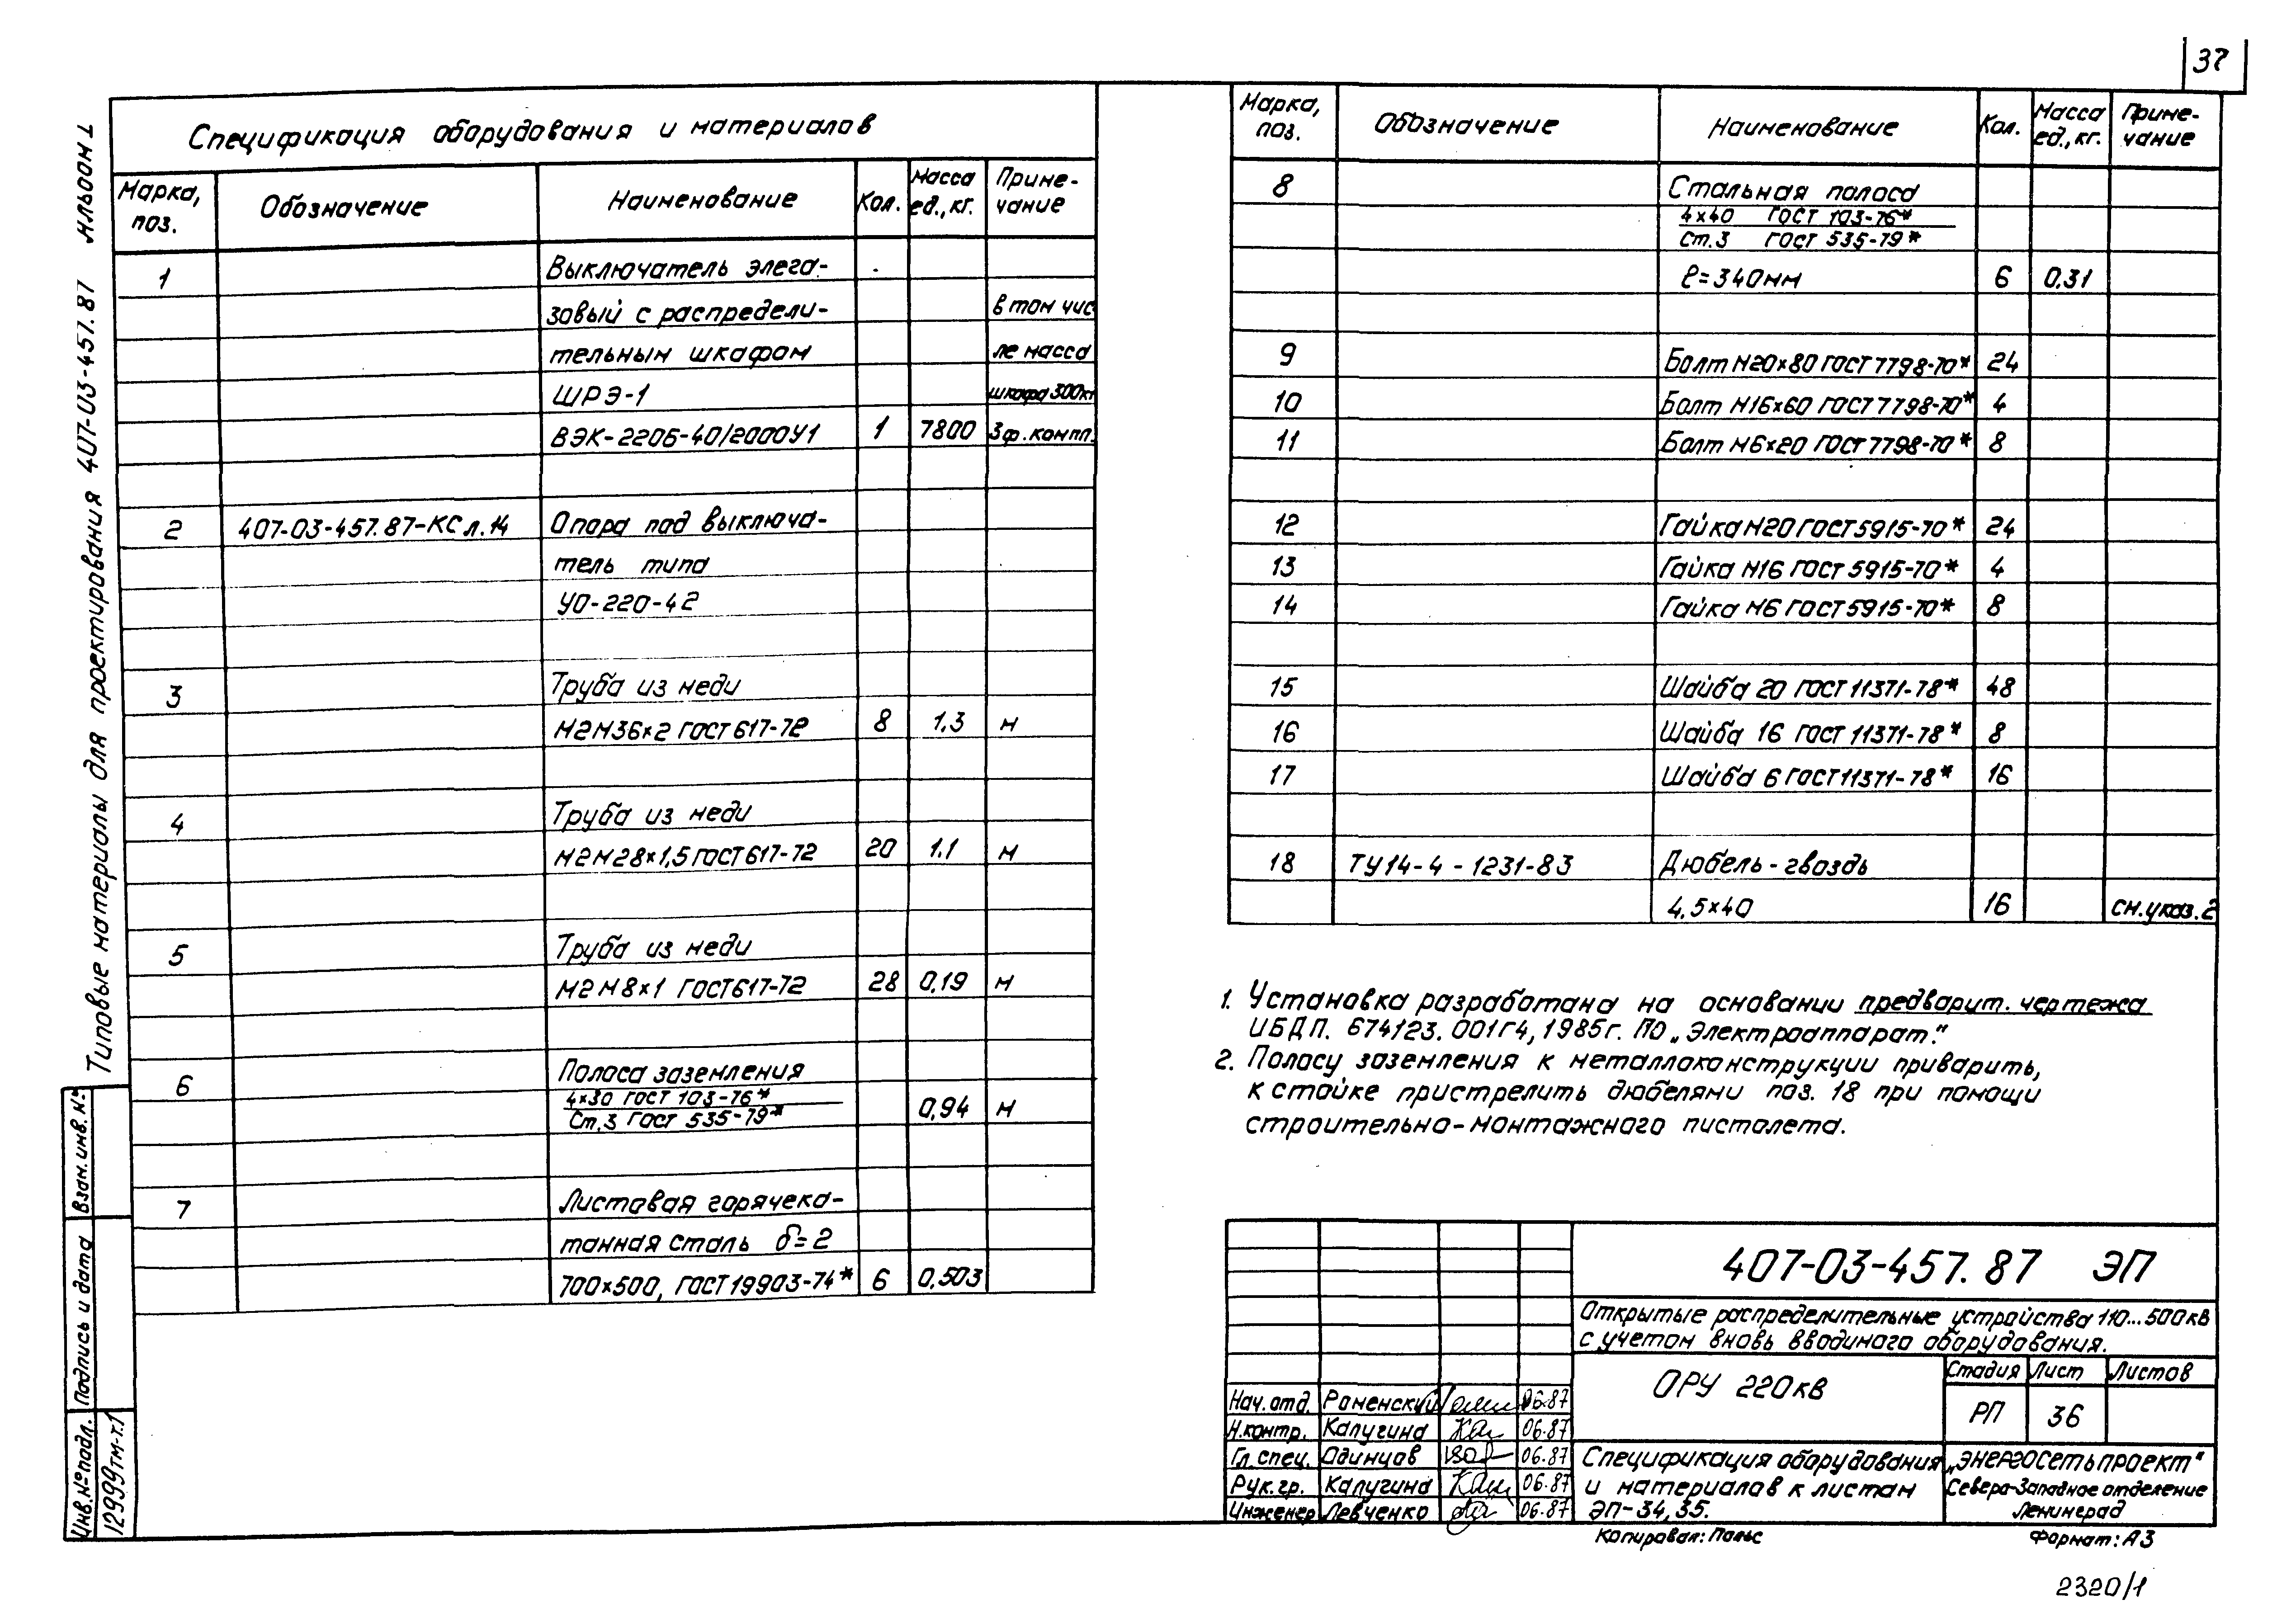 37
Типовые материалы для проектирования 407-03-457.87 Альбом 1
Спецификация оборудования и материалов
Марка, поз. Обозначение Наименование Кол. Масса ед., кг. Приме-чание
1 Выключатель элега-
зовый с распредели- в том чис
тельным шкафом ле масса
ШРЭ-1 шкафа 300кг
ВЭК-220Б-40/2000У1 1 7800 3ф.компл.
2 407-03-457.87-КС л.14 Опора под выключа-
тель типа
УО-220-42
3 Труба из меди
М2М36×2 ГОСТ 617-72 8 1.3 м
4 Труба из меди
М2М28×1,5 ГОСТ 617-72 20 1.1 м
5 Труба из меди
М2М8×1 ГОСТ 617-72 28 0,19 м
6 Полоса заземления
4×30 ГОСТ 103-76*
Ст.3 ГОСТ 535-79* 0,94 м
7 Листовая горячека-
танная сталь δ=2
700×500, ГОСТ 19903-74* 6 0,503
Марка, поз. Обозначение Наименование Кол. Масса ед., кг. Приме-чание
8 Стальная полоса
4×40 ГОСТ 103-76*
Ст.3 ГОСТ 535-79*
ℓ=340мм 6 0,31
9 Болт М20×80 ГОСТ 7798-70* 24
10 Болт М16×60 ГОСТ 7798-70* 4
11 Болт М6×20 ГОСТ 7798-70* 8
12 Гайка М20 ГОСТ 5915-70* 24
13 Гайка М16 ГОСТ 5915-70* 4
14 Гайка М6 ГОСТ 5915-70* 8
15 Шайба 20 ГОСТ 11371-78* 48
16 Шайба 16 ГОСТ 11371-78* 8
17 Шайба 6 ГОСТ 11371-78* 16
18 ТУ14-4-1231-83 Дюбель-гвоздь
4,5×40 16 см.указ.2
1. Установка разработана на основании предварит. чертежа
ИБДП. 674123.001Г4, 1985г. ПО „Электроаппарат."
2. Полосу заземления к металлоконструкции приварить,
к стойке пристрелить дюбелями поз. 18 при помощи
строительно-монтажного пистолета.
407-03-457.87 ЭП
Открытые распределительные устройства 110...500кв
с учетом вновь вводимого оборудования.
ОРУ 220кв
Стадия Лист Листов
РП 36
Нач.отд. Роменский 06.87
Н.контр. Калугина 06.87
Гл.спец. Одинцов 06.87
Рук.гр. Калугина 06.87
Инженер Левченко 06.87
Спецификация оборудования
и материалов к листам
ЭП-34,35.
„Энергосетьпроект"
Северо-Западное отделение
Ленинград
Копировал: Польс
Формат: А3
2320/1
Взам.инв.№
Подпись и дата
Инв.№подл.
12999тм-т.1